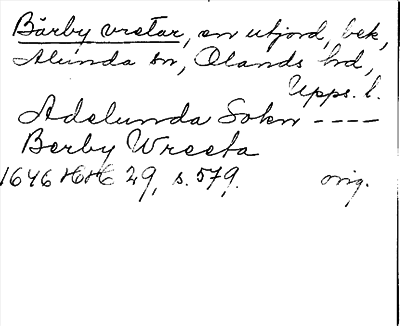 Bärby vretar, en utjord, bek,
Alunda sn, Olands hd,
Upps. l.
Adelunda Sokn ----
Berby Wreeta
1646 HH 29, s. 579. orig.